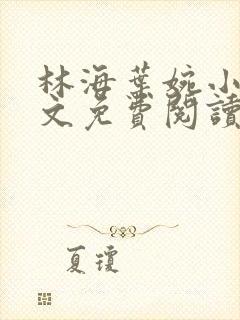 林海葉婉小
文免費閱讀
夏瓊